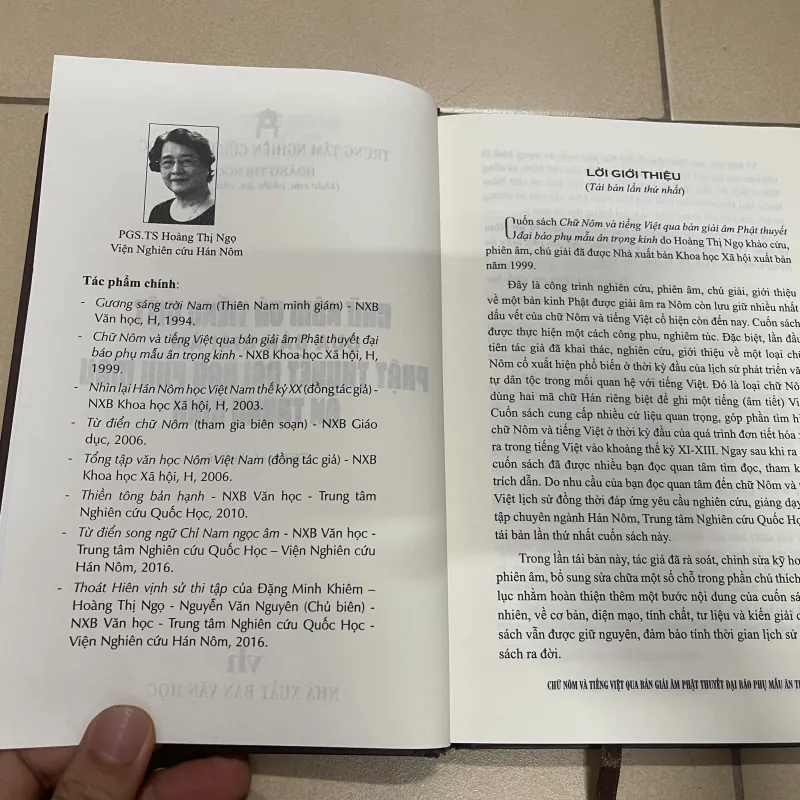 PGS.TS Hoàng Thị Ngọ
Viện Nghiên cứu Hán Nôm
Tác phẩm chính:
- Gương sáng trời Nam (Thiên Nam minh giám) - NXB
Văn học, H, 1994.
- Chữ Nôm và tiếng Việt qua bản giải âm Phật thuyết đại
báo phụ mẫu ân trọng kinh - NXB Khoa học Xã hội, H,
1999.
- Nhìn lại Hán Nôm học Việt Nam thế kỷ XX (đồng tác giả) -
NXB Khoa học Xã hội, H, 2003.
- Từ điển chữ Nôm (tham gia biên soạn) - NXB Giáo
dục, 2006.
- Tổng tập văn học Nôm Việt Nam (đồng tác giả) - NXB
Khoa học Xã hội, H, 2006.
- Thiền tông bản hạnh - NXB Văn học - Trung tâm
Nghiên cứu Quốc Học, 2010.
- Từ điển song ngữ Chỉ Nam ngọc âm - NXB Văn học -
Trung tâm Nghiên cứu Quốc Học – Viện Nghiên cứu
Hán Nôm, 2016.
- Thoát Hiên vịnh sử thi tập của Đặng Minh Khiêm –
Hoàng Thị Ngọ - Nguyễn Văn Nguyên (Chủ biên) -
NXB Văn học - Trung tâm Nghiên cứu Quốc Học -
Viện Nghiên cứu Hán Nôm, 2016.
LỜI GIỚI THIỆU
(Tái bản lần thứ nhất)
Cuốn sách Chữ Nôm và tiếng Việt qua bản giải âm Phật thuyết
đại báo phụ mẫu ân trọng kinh do Hoàng Thị Ngọ khảo cứu,
phiên âm, chú giải đã được Nhà xuất bản Khoa học Xã hội xuất bản
năm 1999.
Đây là công trình nghiên cứu, phiên âm, chú giải, giới thiệu
về một bản kinh Phật được giải âm ra Nôm còn lưu giữ nhiều nhất
dấu vết của chữ Nôm và tiếng Việt cổ hiện còn đến nay. Cuốn sách
được thực hiện một cách công phu, nghiêm túc. Đặc biệt, lần đầu
tiên tác giả đã khai thác, nghiên cứu, giới thiệu về một loại chữ
Nôm cổ xuất hiện phổ biến ở thời kỳ đầu của lịch sử phát triển vă
tự dân tộc trong mối quan hệ với tiếng Việt. Đó là loại chữ Nô
dùng hai mã chữ Hán riêng biệt để ghi một tiếng (âm tiết) Vi
Cuốn sách cung cấp nhiều cứ liệu quan trọng, góp phần tìm hi
chữ Nôm và tiếng Việt ở thời kỳ đầu của quá trình đơn tiết hóa
ra trong tiếng Việt vào khoảng thế kỷ XI-XIII. Ngay sau khi ra
cuốn sách đã được nhiều bạn đọc quan tâm tìm đọc, tham k
trích dẫn. Do nhu cầu của bạn đọc quan tâm đến chữ Nôm và
Việt lịch sử đồng thời đáp ứng yêu cầu nghiên cứu, giảng dạy
tập chuyên ngành Hán Nôm, Trung tâm Nghiên cứu Quốc Họ
tái bản lần thứ nhất cuốn sách này.
Trong lần tái bản này, tác giả đã rà soát, chỉnh sửa kỹ hơ
phiên âm, bổ sung sửa chữa một số chỗ trong phần chú thích
lục nhằm hoàn thiện thêm một bước nội dung của cuốn sá
nhiên, về cơ bản, diện mạo, tính chất, tư liệu và kiến giải c
sách vẫn được giữ nguyên, đảm bảo tính thời gian lịch sử
sách ra đời.
CHỮ NÔM VÀ TIẾNG VIỆT QUA BẢN GIẢI ÂM PHẬT THUYẾT ĐẠI BÁO PHỤ MẪU ÂN